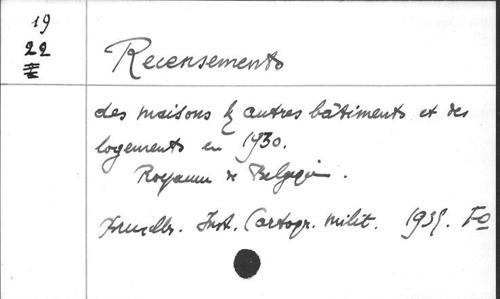 19
22
Recensements
des maisons & autres bâtiments et des
logements en 1930.
Royaume de Belgique.
Bruxelles. Inst. Cartogr. milit. 1935. Fo